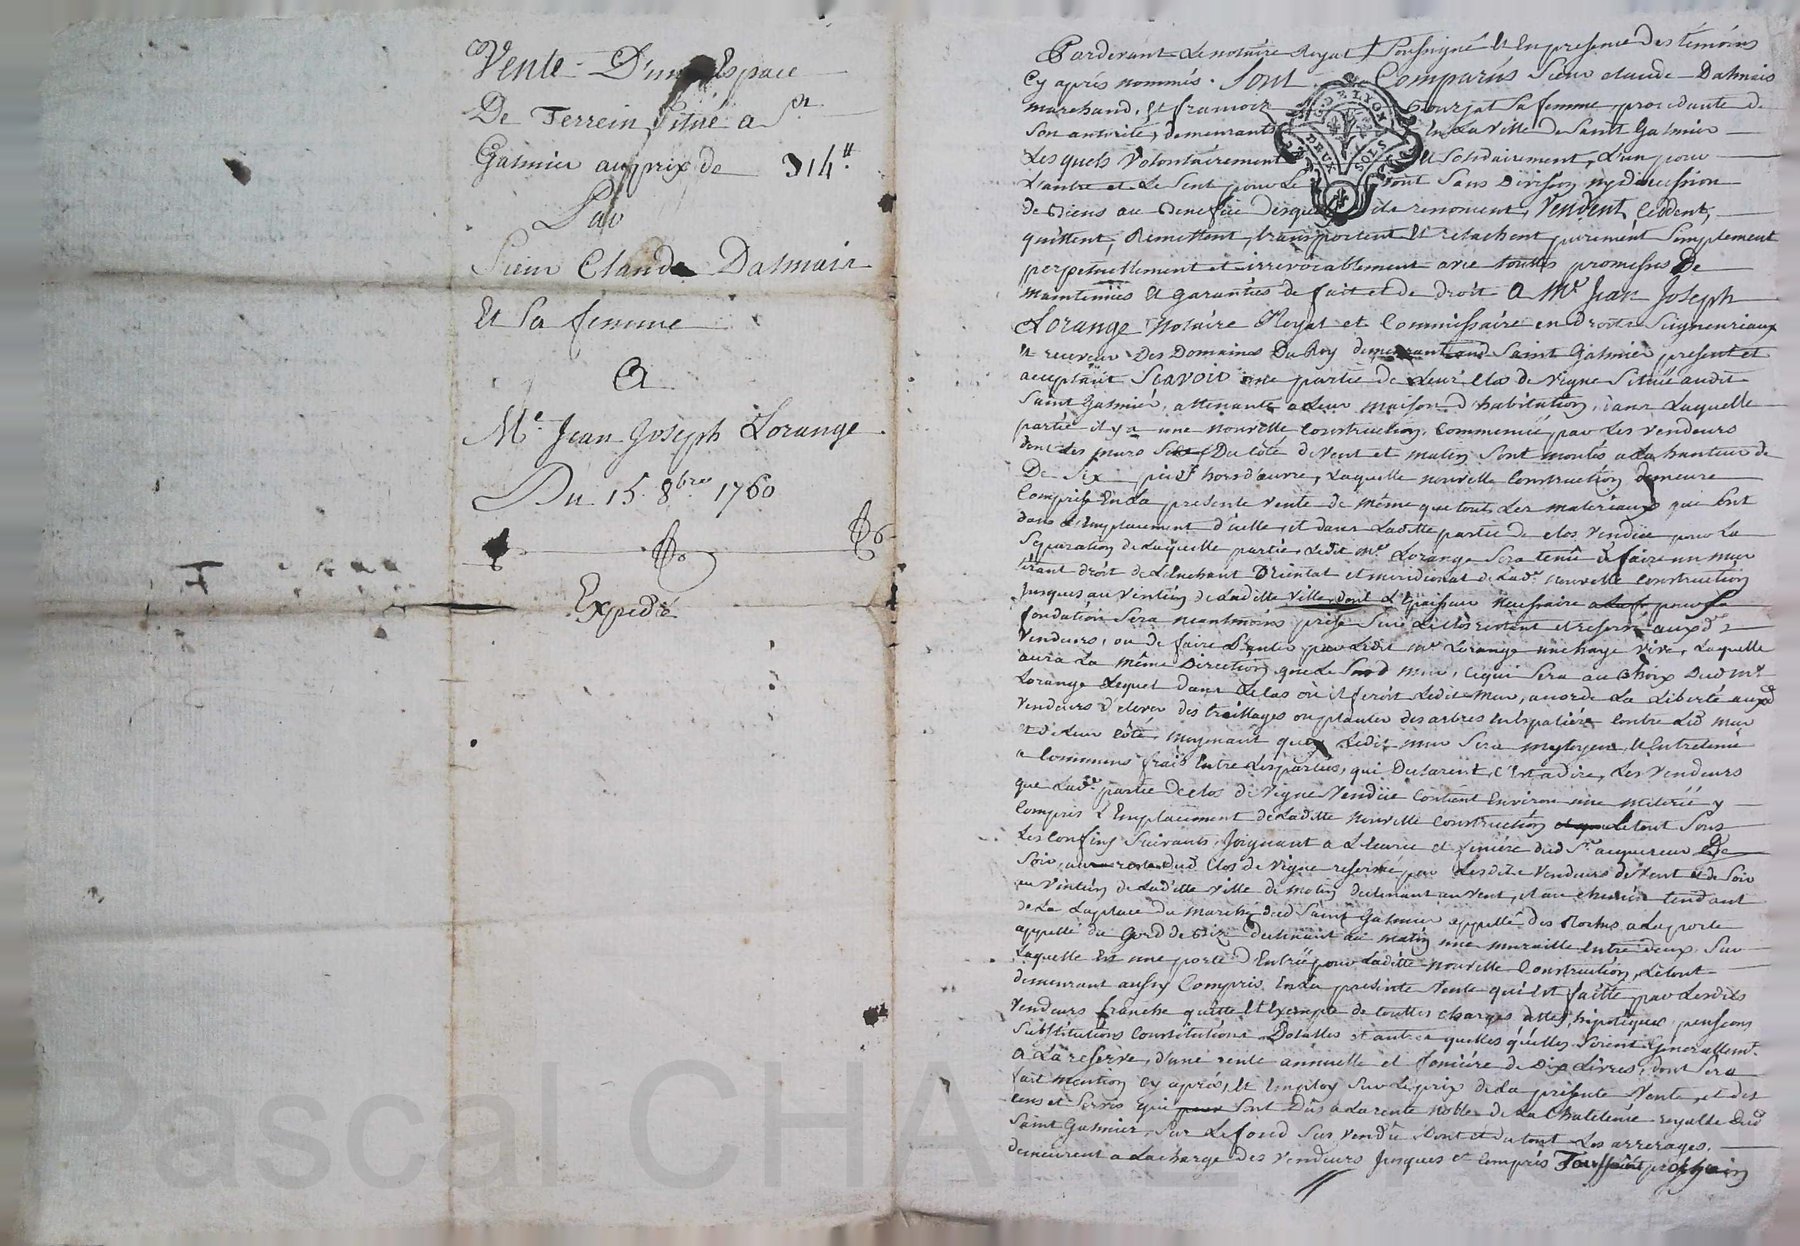 Vente D'un Espace
De Terrein Situé a St.
Galmier au prix de 314 ₶.
Par
Sieur Claude Dalmais
Et Sa femme
A
Me. Jean Joseph Lorange
Du 15 8bre 1760
Expedié
Pardevant Le notaire Royal Soussigné Et En presence Des témoins
Cy aprés nommés. Sont Comparus Sieur claude Dalmais
marchand, Et Gourjat Sa femme, procedante de
Son autorité, demeurants En La ville De Saint Galmier
Lesquels Volontairement Et Solidairement, L'un pour
L'autre et Le Seul pour Le tout Sans Division ny discussion
de Biens au Benefice Desquels ils renoncent, Vendent, Ceddent,
quittent, Remettent, transportent Et relachent purement Simplement
perpetuellement et irrevocablement avec touttes promesses De
maintenües Et garanties de fait et de droit A Me. Jean Joseph
Lorange notaire Royal et Commissaire en Droits Seigneuriaux
Et receveur Des Domaines Du Roy Saint Galmier present et
acceptant Scavoir une partie de Leur Clos de vigne Situé audit
Saint Galmier, attenante a Leur maison d'habitation, dans Laquelle
partie il y a une nouvelle Construction, Commencée par Les vendeurs
dont Les murs Du Côté de Vent et matin Sont montés a La hauteur de
De Six pieds hors d'œuvre, Laquelle nouvelle Construction demeure
Comprise En La presente vente de même que tout Les materiaux qui Sont
dans L'Emplacement d'icelle, et dans Laditte partie de clos Vendüe pour La
Separation de Laquelle partie, Ledit Me. Lorange Sera tenû de faire un mur
tirant droit de L'Enchant Oriental et meridional de Lade. nouvelle Construction
Jusques au Vintein de Laditte Ville, dont L'Epaisseur necessaire pour Sa
fondation Sera neantmoins prise Sur Le Clos restant et reservé auxds.
Vendeurs, ou de faire planter par Ledit Me. Lorange une haye vive, Laquelle
aura La même Direction que Le Sd. mur, Ce qui Sera au Choix Dud. Me.
Lorange Lequel dans Le Cas où il feroit Ledit Mur, accorde La Liberté auxd.
Vendeurs d'elever des treillages ou planter des arbres En Espaliers Contre Led. mur
et de Leur Côté, moyenant que Ledit mur Sera mytoyen, Et Entretenû
a Communs frais Entre Les parties, qui Declarent, c'Est a dire, Les Vendeurs
que Lade. partie de clos de Vigne Vendüe Contient Environ une y
Compris L'Emplacement de Laditte nouvelle Construction Le tout Sous
Les Confins Suivants, Joignant a L'Ecurie et feniere dud. Sr. acquereur De
Soir, dud. Clos de Vigne reservé par Lesdits Vendeurs de Vent et de Soir
au Vintein de Laditte ville de matin declinant au Vent, et au Chemin tendant
de La place du marché dud. Saint Galmier appellé des Roches a La porte
appellé du declinant au matin une muraille Entre deux, Sur
Laquelle Est une porte D'Entrée pour Laditte nouvelle Construction, Le tout
demeurant aussy Compris En La presente Vente qui Est faitte par Lesdits
Vendeurs franche quitte Et Exempte de touttes charges, dettes, hipoteques, pensions
Substitutions Constitutions Dotalles et autres quelles qu'elles Soient Generallemt.
A La reserve, d'une rente annuelle et fonciére de Dix Livres, dont Sera
fait mention Cy aprés, Et Employ Sur Le prix de La presente Vente, et des
Cens et Servis qui Sont Dûs a La rente noble de La Chatelenie royalle Dud.
Saint Galmier, Sur Le fond Sus vendû dont et du tout Les arrerages
demeurent a La charge des Vendeurs Jusques et Compris Toussaint prochain